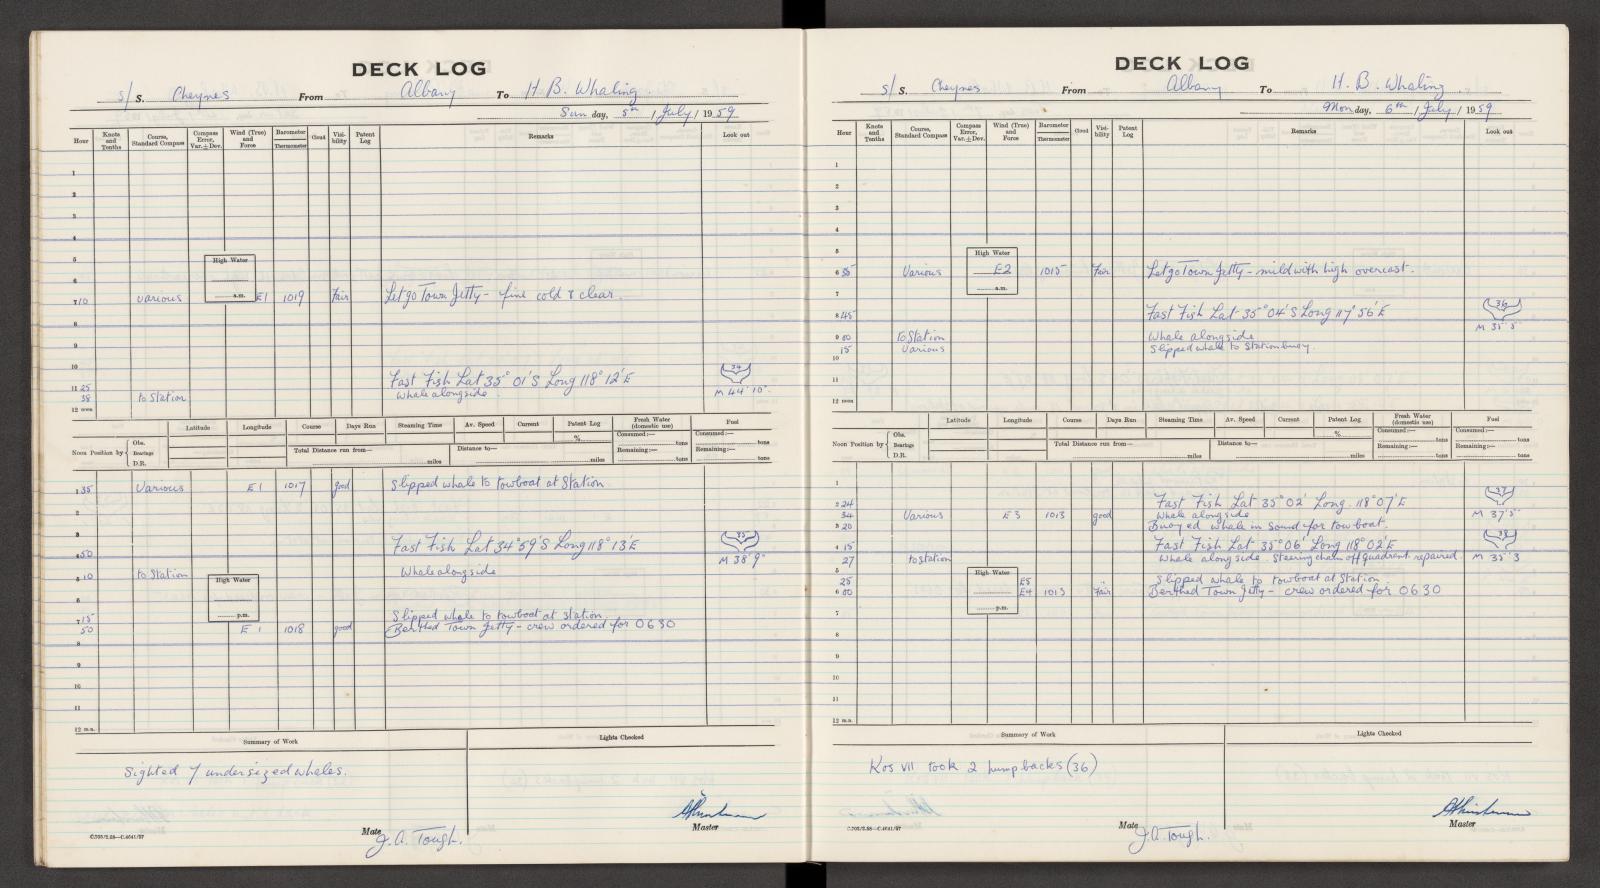 DECK LOG
s/ S. Cheynes From Albany To H. B. Whaling.
Sun day, 5th / July / 1959
Hour Knots and Tenths Course, Standard Compass Compass Error, Var. ± Dev. Wind (True) and Force Barometer Thermometer Cloud Visibility Patent Log Remarks Look out
1
2
3
4
5
High Water
6
a.m.
7 10 various E1 1019 Fair Let go Town Jetty - fine cold & clear.
8
9
10
34
11 25 Fast Fish Lat 35° 01' S Long 118° 12' E
38 to Station Whale alongside M 44' 10"
12 noon
Latitude Longitude Course Days Run Steaming Time Av. Speed Current Patent Log Fresh Water (domestic use) Fuel
% Consumed:— tons Consumed:— tons
Noon Position by Obs. Bearings D.R. Total Distance run from— miles Distance to— miles Remaining:— tons Remaining:— tons
1 35 Various E1 1017 good Slipped whale to towboat at Station.
2
3
35
4 50 Fast Fish Lat 34° 59' S Long 118° 13' E M 38' 9"
5 10 to Station Whale alongside
High Water
6
p.m.
7 15 Slipped whale to towboat at Station.
50 E 1 1018 good Berthed Town Jetty - crew ordered for 0630
8
9
10
11
12 m.n.
Summary of Work Lights Checked
Sighted 7 undersized whales.
C.705/2.58—C.4641/57 Mate J.A. Tough. Master
DECK LOG
s/ S. Cheynes From Albany To H. B. Whaling
Mon day, 6th / July / 1959
Hour Knots and Tenths Course, Standard Compass Compass Error, Var. ± Dev. Wind (True) and Force Barometer Thermometer Cloud Visibility Patent Log Remarks Look out
1
2
3
4
5
High Water
6 35 Various E2 1015 Fair Let go Town Jetty - mild with high overcast.
a.m.
7
36
8 45 Fast Fish Lat 35° 04' S Long 117° 56' E M 35' 5"
9 00 to Station Whale alongside
15 Various Slipped whale to Station buoy.
10
11
12 noon
Latitude Longitude Course Days Run Steaming Time Av. Speed Current Patent Log Fresh Water (domestic use) Fuel
% Consumed:— tons Consumed:— tons
Noon Position by Obs. Bearings D.R. Total Distance run from— miles Distance to— miles Remaining:— tons Remaining:— tons
1
37
2 24 Fast Fish Lat 35° 02' Long. 118° 07' E
34 Various E3 1013 good Whale alongside M 37' 5"
3 20 Buoyed whale in Sound for towboat.
38
4 15 Fast Fish Lat 35° 06' Long 118° 02' E
27 to Station Whale alongside. Steering chain off quadrant. repaired. M 35' 3
5
High Water
25 E5 Slipped whale to towboat at Station
6 00 E4 1013 Fair Berthed Town Jetty - crew ordered for 0630
p.m.
7
8
9
10
11
12 m.n.
Summary of Work Lights Checked
Kos VII took 2 humpbacks (36)
C.705/2.58—C.4641/57 Mate J.A. Tough. Master